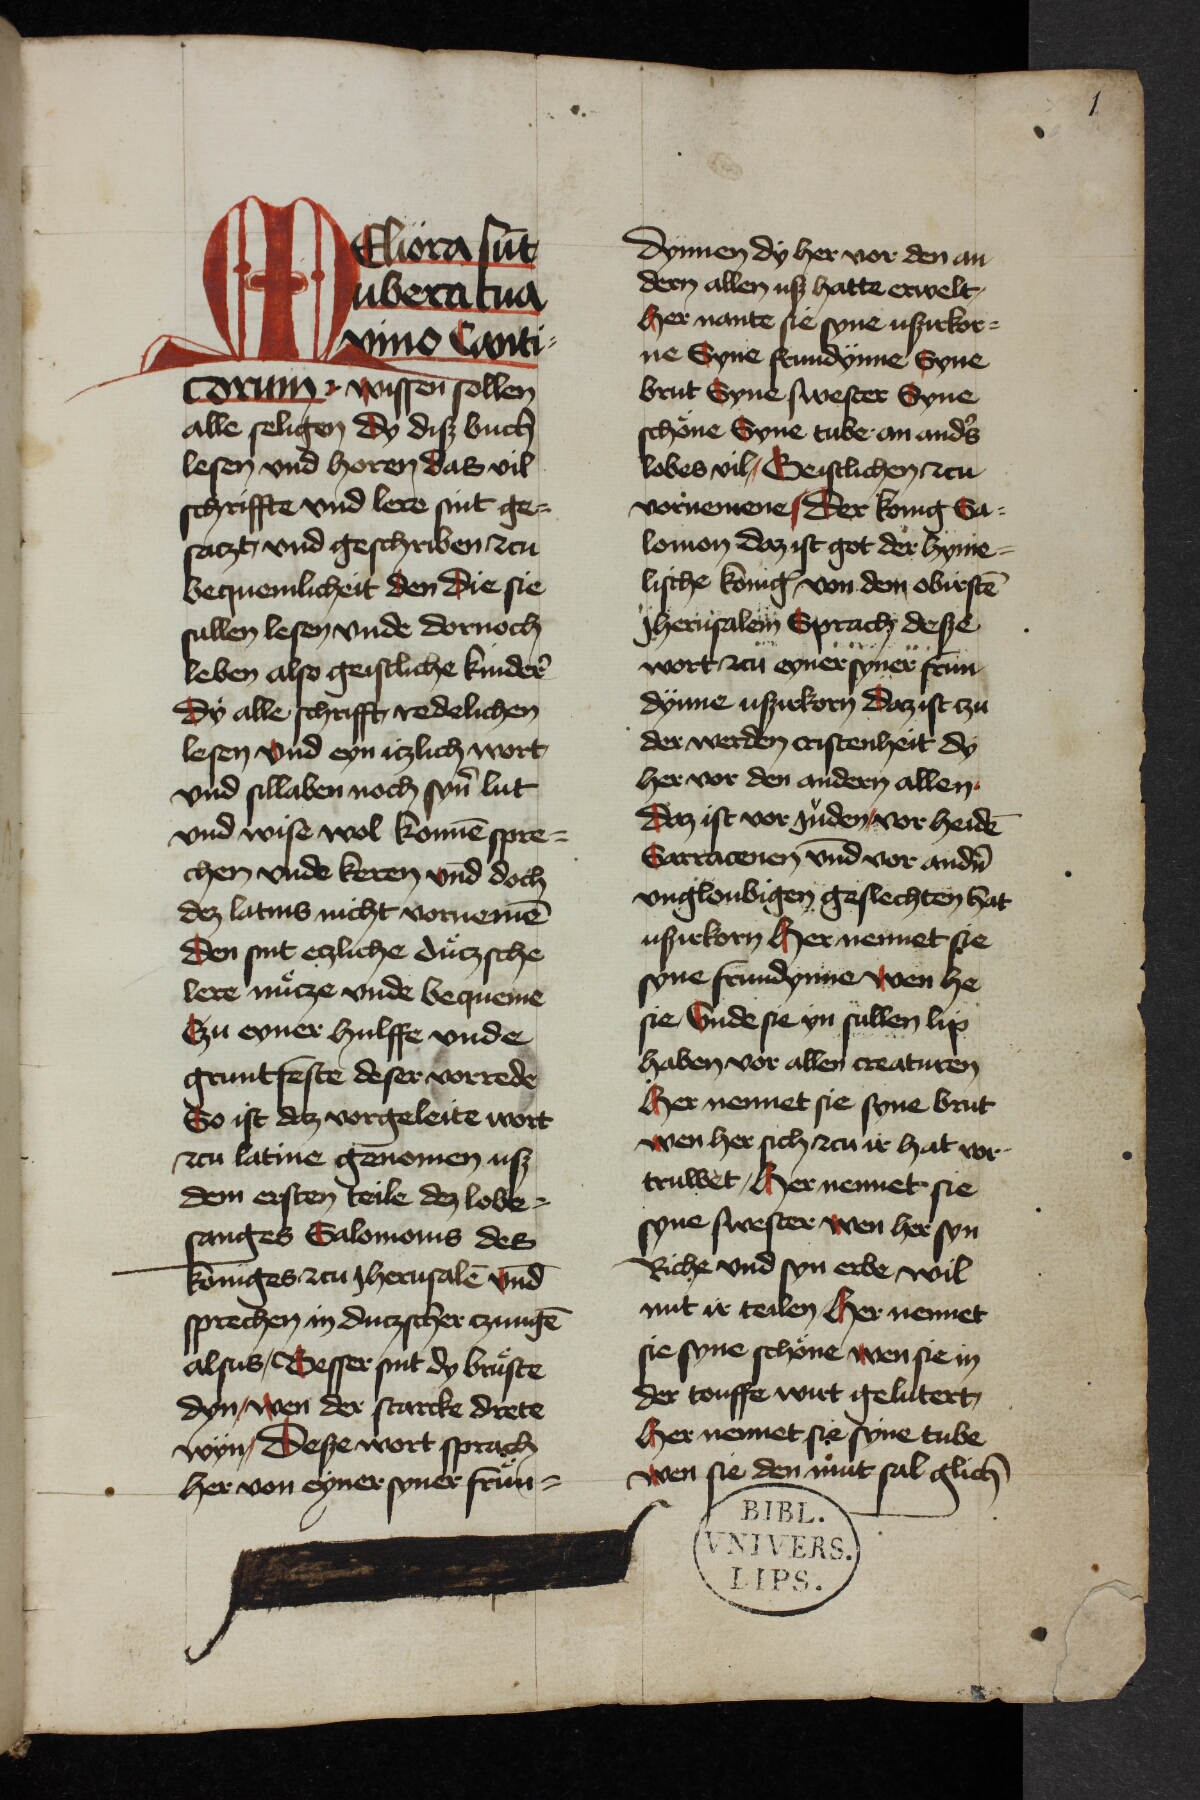 1
MEliora sūt
ubera tua
vino Canti-
corum · wissen sollen
alle seligen Dy disz buch
lesen vnd horen das vil
schriffte vnd lere sint ge-
satzt vnd geschriben zcu
bequemlicheit den Die sie
sullen lesen vnde dornoch
leben also geistliche kinder
Dÿ alle schrifft redelichen
lesen vnd eyn itzlich wort
vnd sillaben noch syn̄ lut
vnd wise wol konnē spre-
chen vnde keren vnd doch
dez latins nicht vornemē
Den sint etzliche dützsche
lere nütze vnde bequeme
Czu eyner hulffe vnde
gruntfeste deser vorrede
So ist daz vorgeleite wort
zcu latine genomen usz
dem ersten teile dez lobe-
sanges Salomonis des
königes zcu Jherusalē vnd
sprechen in dutzscher czungē
alsus / Besser sint dy brüste
dyn / wen der starcke drete
wyn / Desze wort sprach
her von eyner syner frün-
dynnen dÿ her vor den an
dern allen usz hatte erwelt /
Her nante sie syne uszirkor-
ne Syne frundÿnne Syne
brut Syne swester Syne
schöne Syne tube an anders
lobes vil / Geistlichen zcu
vornemene / Der konig Sa-
lomon daz ist got der hyme-
lische konig von dem obirstē
Jherusalem Sprach desze
wort zcu eyner syner frün
dÿnne uszirkorn Daz ist zu
der werden cristenheit dy
her vor den andern allen ·
Daz ist vor Juden / vor heidē
Sarracenen vnd vor andn̄
vngloubigen geslechten hat
uszirkorn Her nennet sie
syne frundynne wen he
sie / Vnde sie yn sullen lip
haben vor allen creaturen
Her nennet sie syne brut
wen her sich zcu ir hat vor-
truwet / Her nennet sie
syne swester wen her syn
Riche vnd syn erbe wil
mit ir teilen Her nennet
sie syne schöne wen sie in
der touffe wirt gelutert /
Her nennet sie syne tube
wen sie den müt sal glich
BIBL.
VNIVERS.
LIPS.